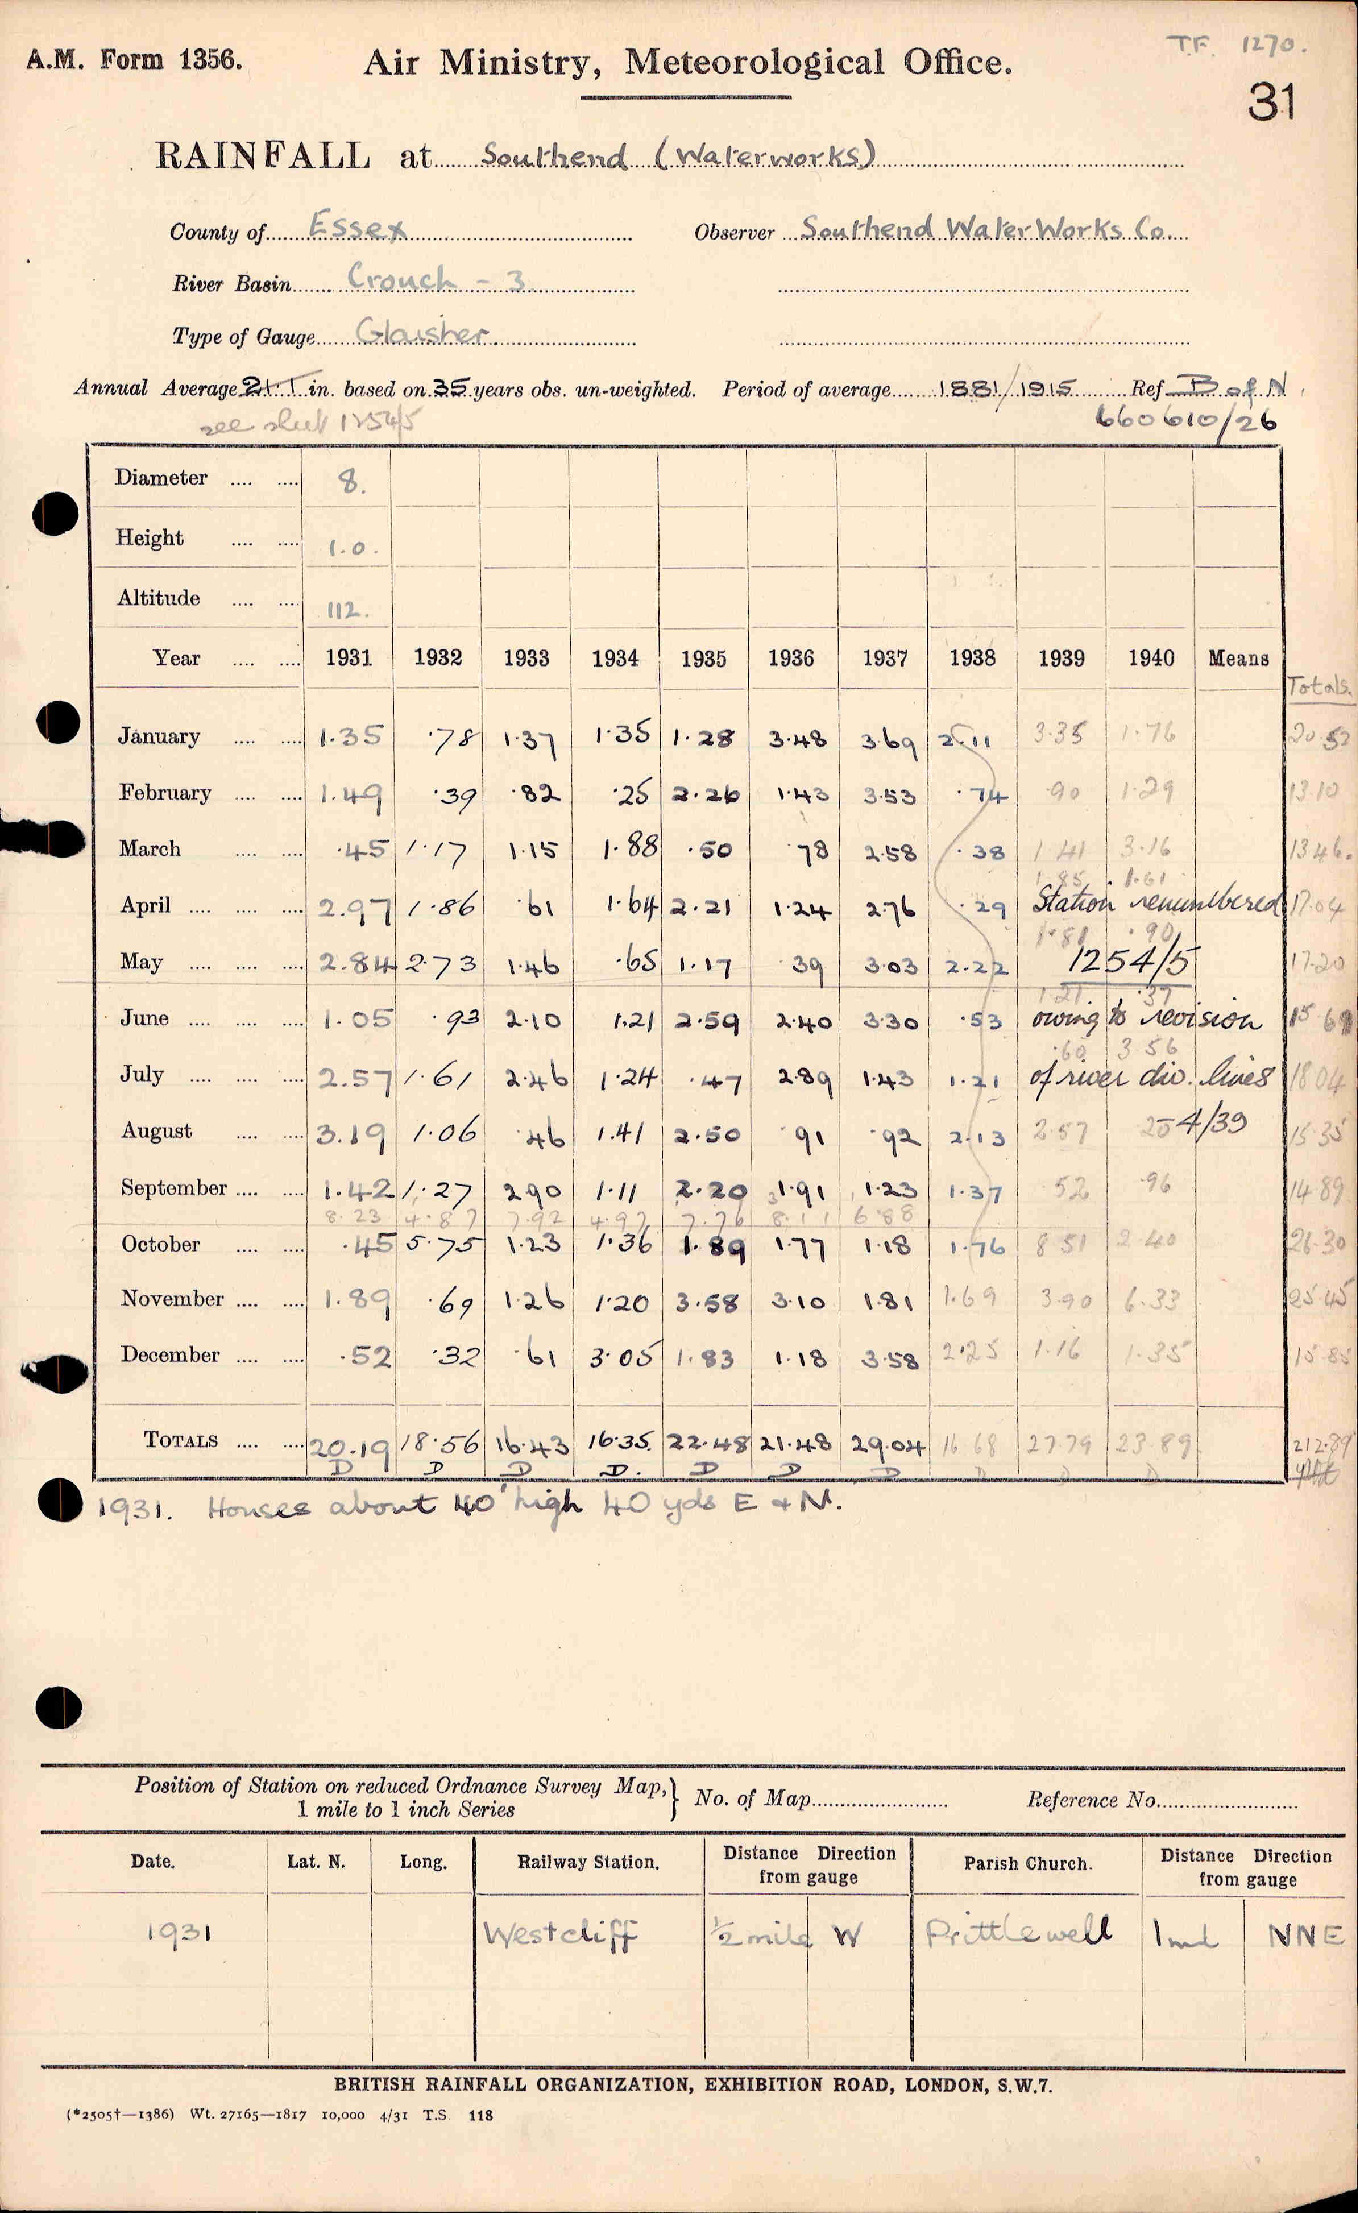 A.M. Form 1356.
Air Ministry, Meteorological Office.
T.F. 1270.
31
RAINFALL at Southend (Waterworks)
County of Essex Observer Southend WaterWorks Co.
River Basin Crouch - 3
Type of Gauge Glaisher
Annual Average in. based on 35 years obs. un-weighted. Period of average 1881/1915 Ref B of N
see sheet 1254/5 660610/26
Diameter .... .... 8.
Height .... .... 1.0.
Altitude .... .... 112.
Year .... .... 1931 1932 1933 1934 1935 1936 1937 1938 1939 1940 Means Totals.
January .... .... 1.35 .78 1.37 1.35 1.28 3.48 3.69 2.11 3.35 1.76 20.52
February .... .... 1.49 .39 .82 .25 2.26 1.43 3.53 .74 .90 1.29 13.10
March .... .... .45 1.17 1.15 1.88 .50 .78 2.58 .38 1.41 3.16 13.46.
1.85 1.61
April .... .... .... 2.97 1.86 .61 1.64 2.21 1.24 2.76 .29 Station renumbered 17.04
1.81 .90
May .... .... .... 2.84 2.73 1.46 .65 1.17 .39 3.03 2.22 1254/5 17.20
1.21 .37
June .... .... .... 1.05 .93 2.10 1.21 2.59 2.40 3.30 .53 owing to revision 15.69
.60 3.56
July .... .... .... 2.57 1.61 2.46 1.24 .47 2.89 1.43 1.21 of river div. lines 18.04
August .... .... 3.19 1.06 .46 1.41 2.50 .91 .92 2.13 2.57 4/39 15.35
September .... .... 1.42 1.27 2.90 1.11 2.20 1.91 1.23 1.37 .52 .96 14.89
8.23 4.87 7.92 4.97 7.76 8.11 6.88
October .... .... .45 5.75 1.23 1.36 1.89 1.77 1.18 1.76 8.51 2.40 26.30
November .... .... 1.89 .69 1.26 1.20 3.58 3.10 1.81 1.69 3.90 6.33 25.45
December .... .... .52 .32 .61 3.05 1.83 1.18 3.58 2.25 1.16 1.35 15.85
TOTALS .... .... 20.19 18.56 16.43 16.35. 22.48 21.48 29.04 16.68 27.79 23.89 212.89
D D D D. D D D D D D
1931. Houses about 40' high 40 yds E & N.
Position of Station on reduced Ordnance Survey Map, } No. of Map Reference No.
1 mile to 1 inch Series
Date. Lat. N. Long. Railway Station. Distance Direction from gauge Parish Church. Distance Direction from gauge
1931 Westcliff ½ mile W Prittlewell 1 ml NNE
BRITISH RAINFALL ORGANIZATION, EXHIBITION ROAD, LONDON, S.W.7.
(*2505†—1386) Wt. 27165—1817 10,000 4/31 T.S. 118